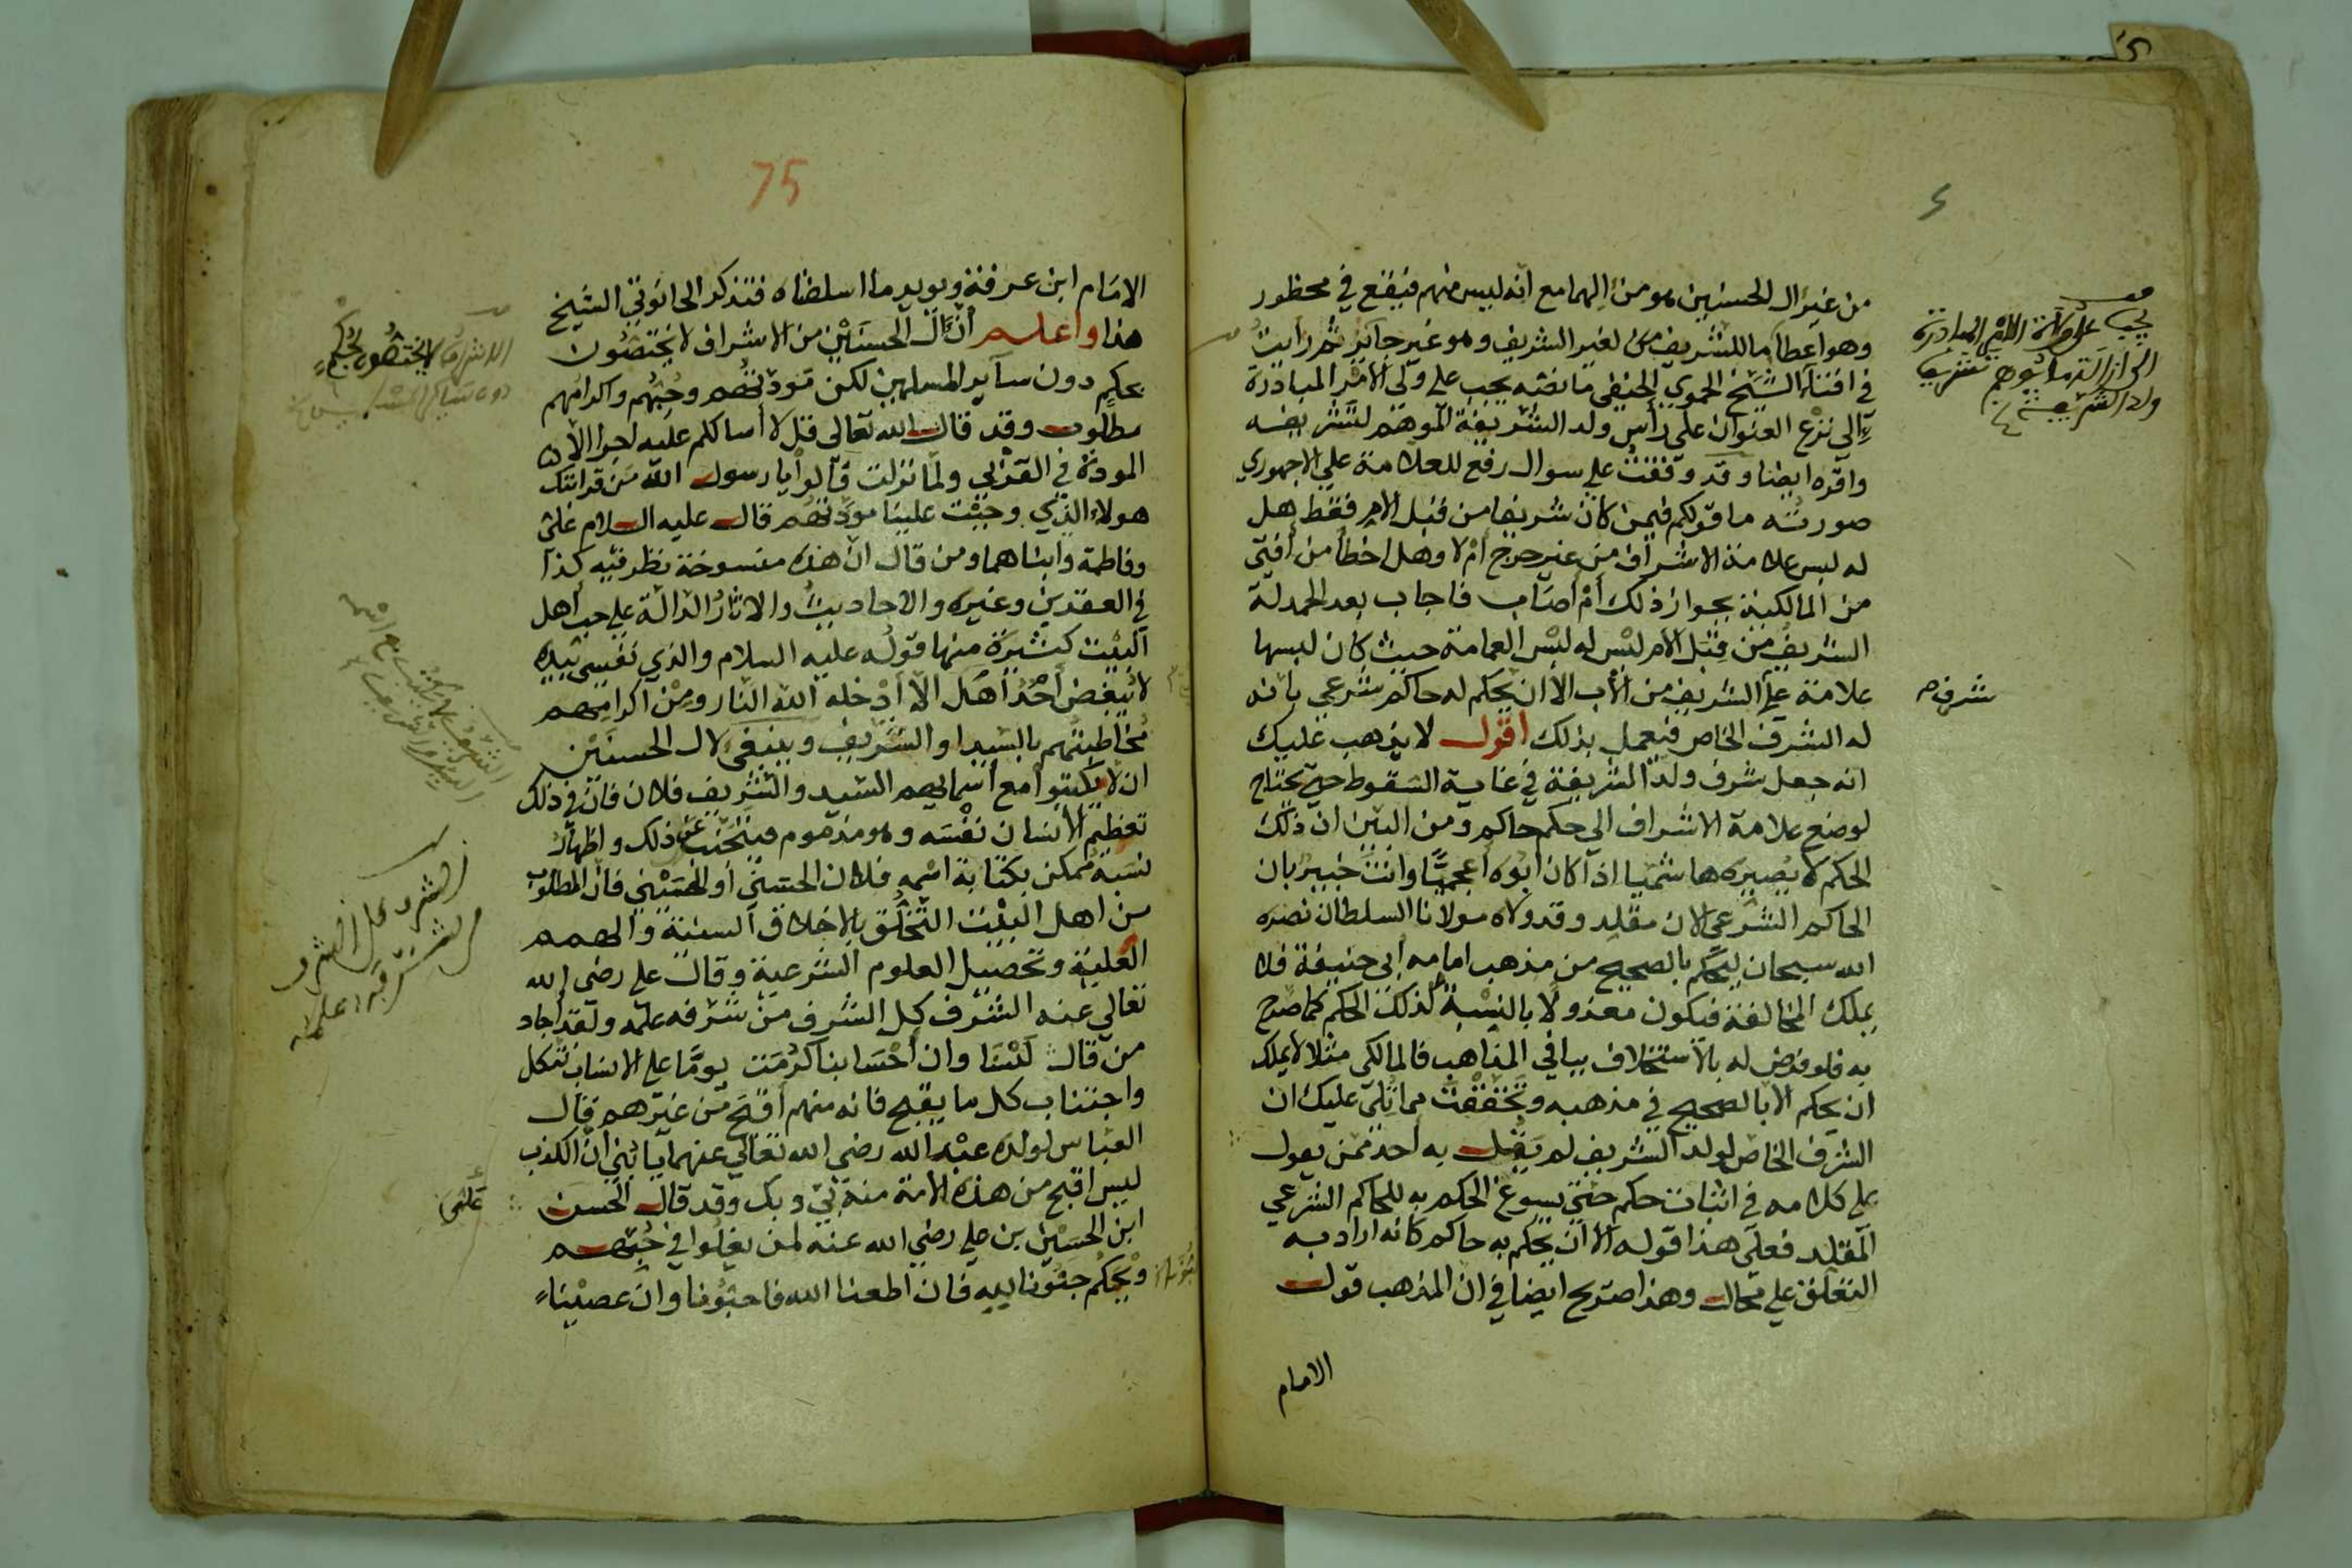 من غير ال الحسنين هو من الهما مع انه ليس منهم فيقع في محظور
وهو اعطآء ما للشريف من لغير الشريف وهو غير جآيز ثم رايت
في افتآء الشيخ الحموي الحنفي ما نصه يجب على ولي الامر المبادرة
الي نزع العنوان على رأس ولد الشريفة الموهم لتشريفه
واقره ايضا وقد وقفت على سوال رفع للعلامة على الاجهوري
صورته ما قولكم فيمن كان شريفا من قبل الام فقط هل
له لبس علامة الاشراف من غير حرج ام لا وهل اخطأ من أفتى
من المالكية بجواز ذلك أم أصاب فاجاب بعد الحمدلة
الشريف من قبل الام ليس له لبس العمامة حيث كان لبسها
علامة على الشريف من الأب الا ان يحكم له حاكم شرعي بانه
له الشرف الخاص فيعمل بذلك اقول لا يذهب عليك
انه جعل شرف ولد الشريفة في غاية السقوط حتى يحتاج
لوضع علامة الاشراف الى حكم حاكم ومن البين ان ذلك
الحكم لا يصيره هاشميا اذا كان ابوه اعجميًّا وانت خبير بان
الحاكم الشرعي الان مقلد وقد ولاه مولانا السلطان نصره
الله سبحان ليحكم بالصحيح من مذهب امامه ابي حنيفة فلا
يملك المخالفة فيكون معذولا بالنسبة لذلك الحكم كما صرح
به فلو فوض له بالاستخلاف بباقي المذاهب فالمالكى مثلا لا يملك
ان يحكم الا بالصحيح في مذهبه وتحققت مما تلى عليك ان
الشرف الخاص لولد الشريف لم يقل به احد ممن يعول
على كلامه في اثبات حكم حتى يسوغ الحكم به للحاكم الشرعي
المقلد فعلى هذا قوله الا ان يحكم به حاكم كانه اراد به
التعلق على محال وهذا صريح ايضا في ان المذهب قول
الامام
يجب على ولاة الامر المبادرة
الى ازالة ما يوهم تشريف
ولد الشريفة
شرف
75
الامام ابن عرفة ويويد ما اسلفناه فتذكر الحانوتي الشيخ
هذا واعلم أن ال الحسنين من الاشراف لا يختصون
بحكم دون سآير المسلمين لكن مودتهم وحبهم واكرامهم
مطلوب وقد قال الله تعالى قل لا أسالكم عليه اجرا الا
المودة في القربي ولما نزلت قالوا يا رسول الله من قرابتك
هولاء الذي وجبت علينا مودتهم قال عليه السلام على
وفاطمة وابناهما ومن قال ان هذه منسوخة نظر فيه كذا
في العقدين وغيره والاحاديث والاثار الدالة على حب أهل
البيت كثيرة منها قوله عليه السلام والذي نفسي بيده
لا يبغض أحد أهل الا أدخله الله النار ومن اكرامهم
مخاطبتهم بالسيد او الشريف وينبغي لال الحسنين
ان لا يكتبوا مع اسمايهم السيد والشريف فلان فان في ذلك
تعظيم الانسان نفسه وهو مذموم فيتجنب عن ذلك واظهار
نسبة ممكن بكتابة اسمه فلان الحسني أو الحسيني فان المطلوب
من اهل البيت التخلق بالاخلاق السنية والهمم
العلية وتحصيل العلوم الشرعية وقال على رضى الله
تعالي عنه الشرف كل الشرف من شرفه علمه ولقد اجاد
من قال لسنا وان احسابنا كرمت يومًا على الانساب نتكل
واجتناب كل ما يقبح فانه منهم أقبح من غيرهم قال
العباس لولده عبد الله رضي الله تعالي عنهما يا بني ان الكذب
ليس اقبح من هذه الامة منه بي وبك وقد قال الحسن
ابن الحسين بن على رضي الله عنه لمن يغلوا في حبهم
ويحكم حبونا لله فان اطعنا الله فاحبونا وان عصينا
الاشراف لا يختصون بحكم
الشرف كل الشرف
من شرفه علمه